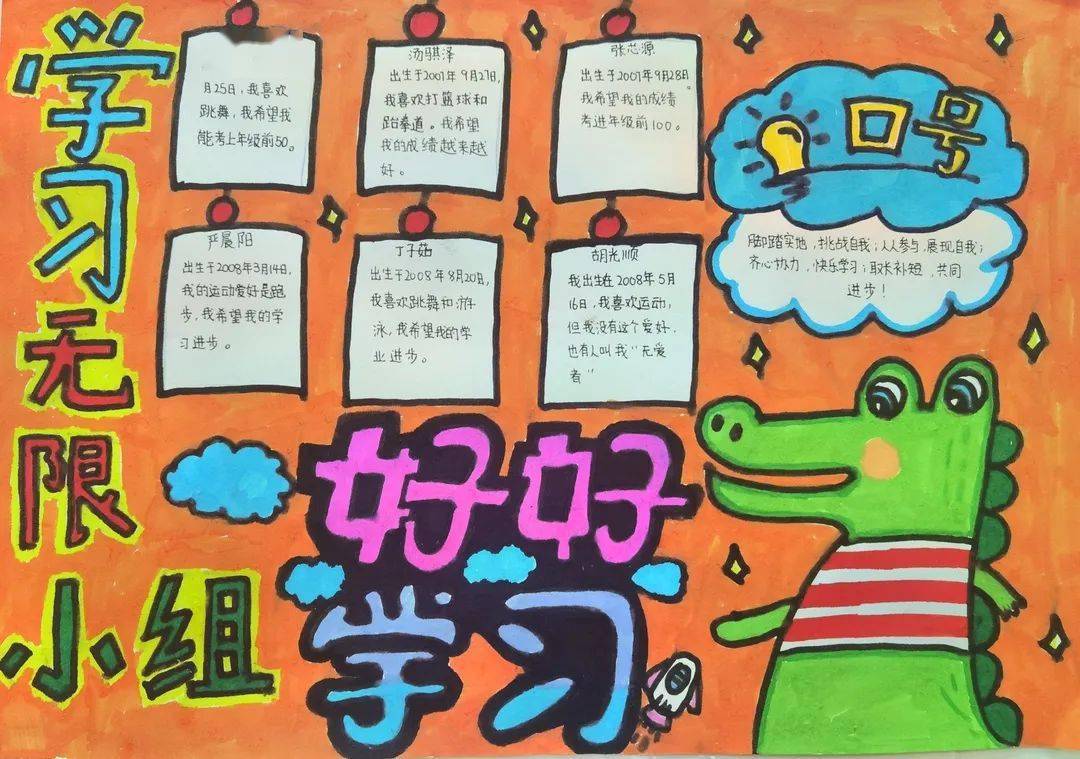 学习无限
小组
月25日，我喜欢
跳舞，我希望我
能考上年级前50。
汤骐泽
出生于2007年9月27日，
我喜欢打篮球和
跆拳道。我希望
我的成绩越来越
好。
张芯源
出生于2007年9月28日。
我希望我的成绩
考进年级前100。
口号
脚踏实地，挑战自我；人人参与，展现自我；
齐心协力，快乐学习；取长补短，共同
进步！
严晨阳
出生于2008年3月14日，
我的运动爱好是跑
步，我希望我的学
习进步。
丁子茹
出生于2008年8月20日，
我喜欢跳舞和游
泳，我希望我的学
业进步。
胡光顺
我出生在2008年5月
16日，我喜欢运动，
但我没有这个爱好，
也有人叫我“无爱
者”
好好
学习